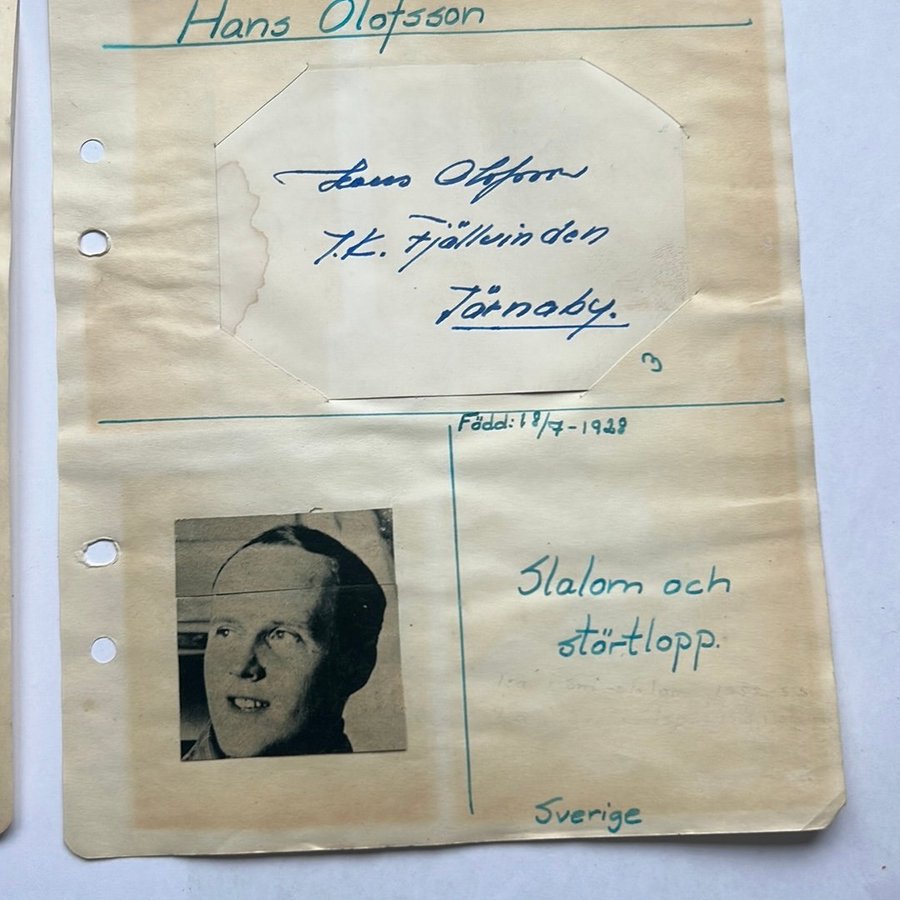 Hans Olofsson
Hans Olofsson
I.K. Fjällvinden
Tärnaby.
3
Född: 18/7-1928
Slalom och
störtlopp.
Sverige